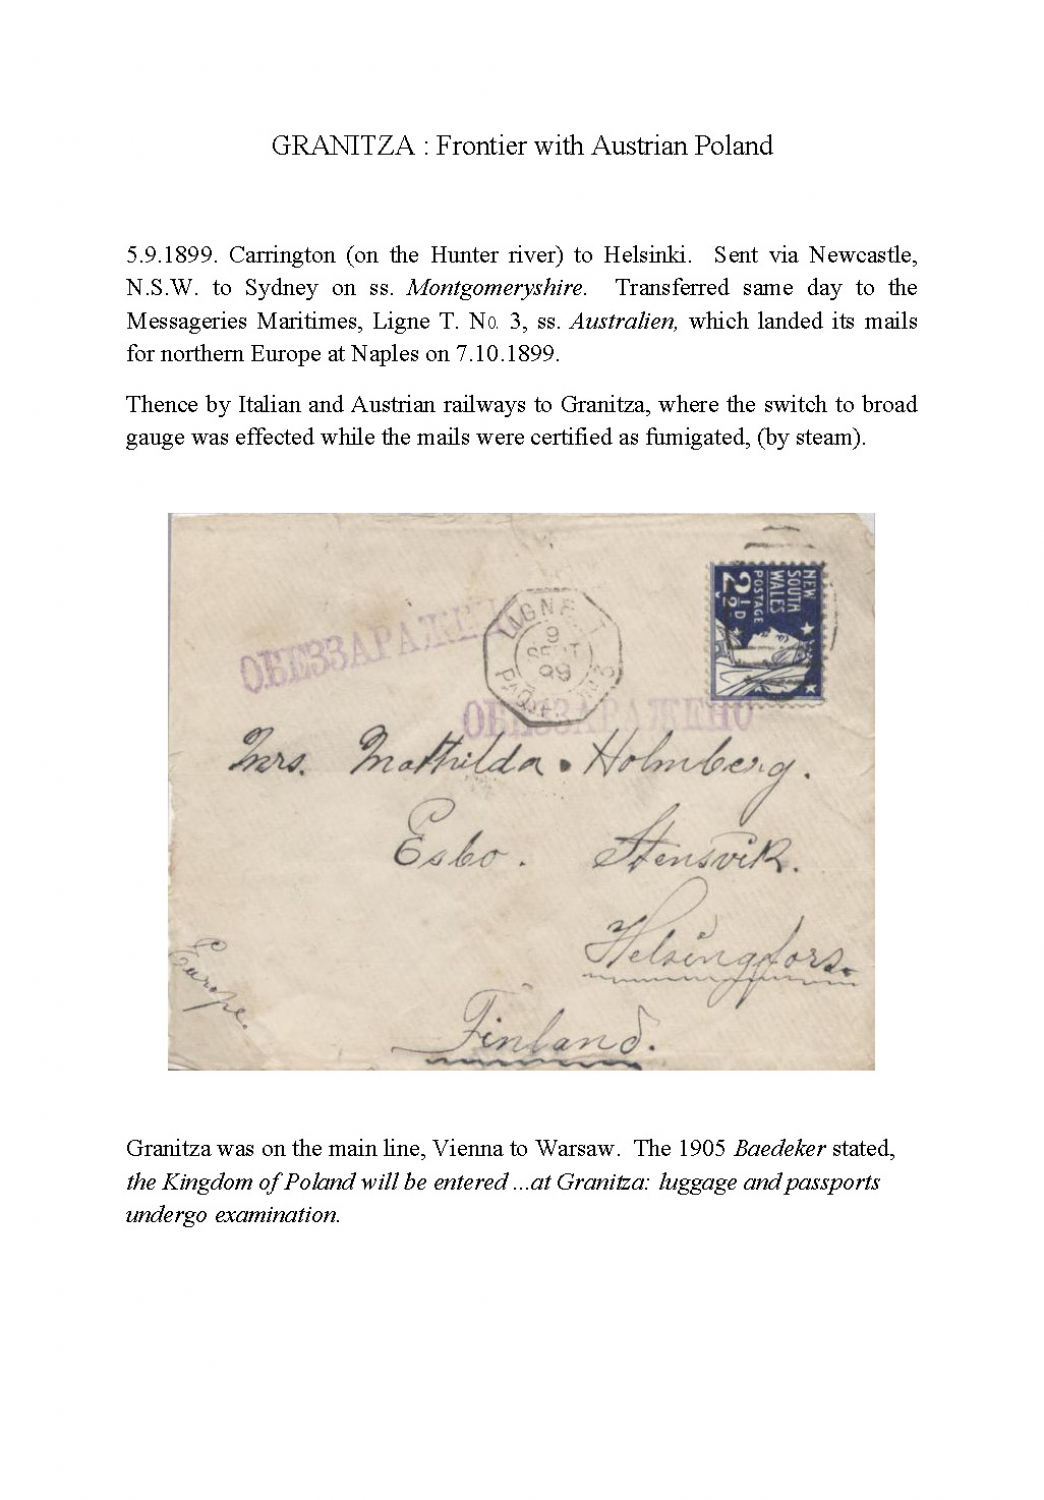 GRANITZA : Frontier with Austrian Poland
5.9.1899. Carrington (on the Hunter river) to Helsinki. Sent via Newcastle,
N.S.W. to Sydney on ss. Montgomeryshire. Transferred same day to the
Messageries Maritimes, Ligne T. No. 3, ss. Australien, which landed its mails
for northern Europe at Naples on 7.10.1899.
Thence by Italian and Austrian railways to Granitza, where the switch to broad
gauge was effected while the mails were certified as fumigated, (by steam).
NEW
SOUTH
WALES
POSTAGE
2½D
LIGNE T
9
SEPT
99
PAQ. FR. No 3
ОБЕЗЗАРАЖЕН
ОБЕЗЗАРАЖЕНО
Mrs. Mathilda Holmberg.
Esbo. Stensvik.
Helsingfors.
Europe.
Finland.
Granitza was on the main line, Vienna to Warsaw. The 1905 Baedeker stated,
the Kingdom of Poland will be entered ...at Granitza: luggage and passports
undergo examination.